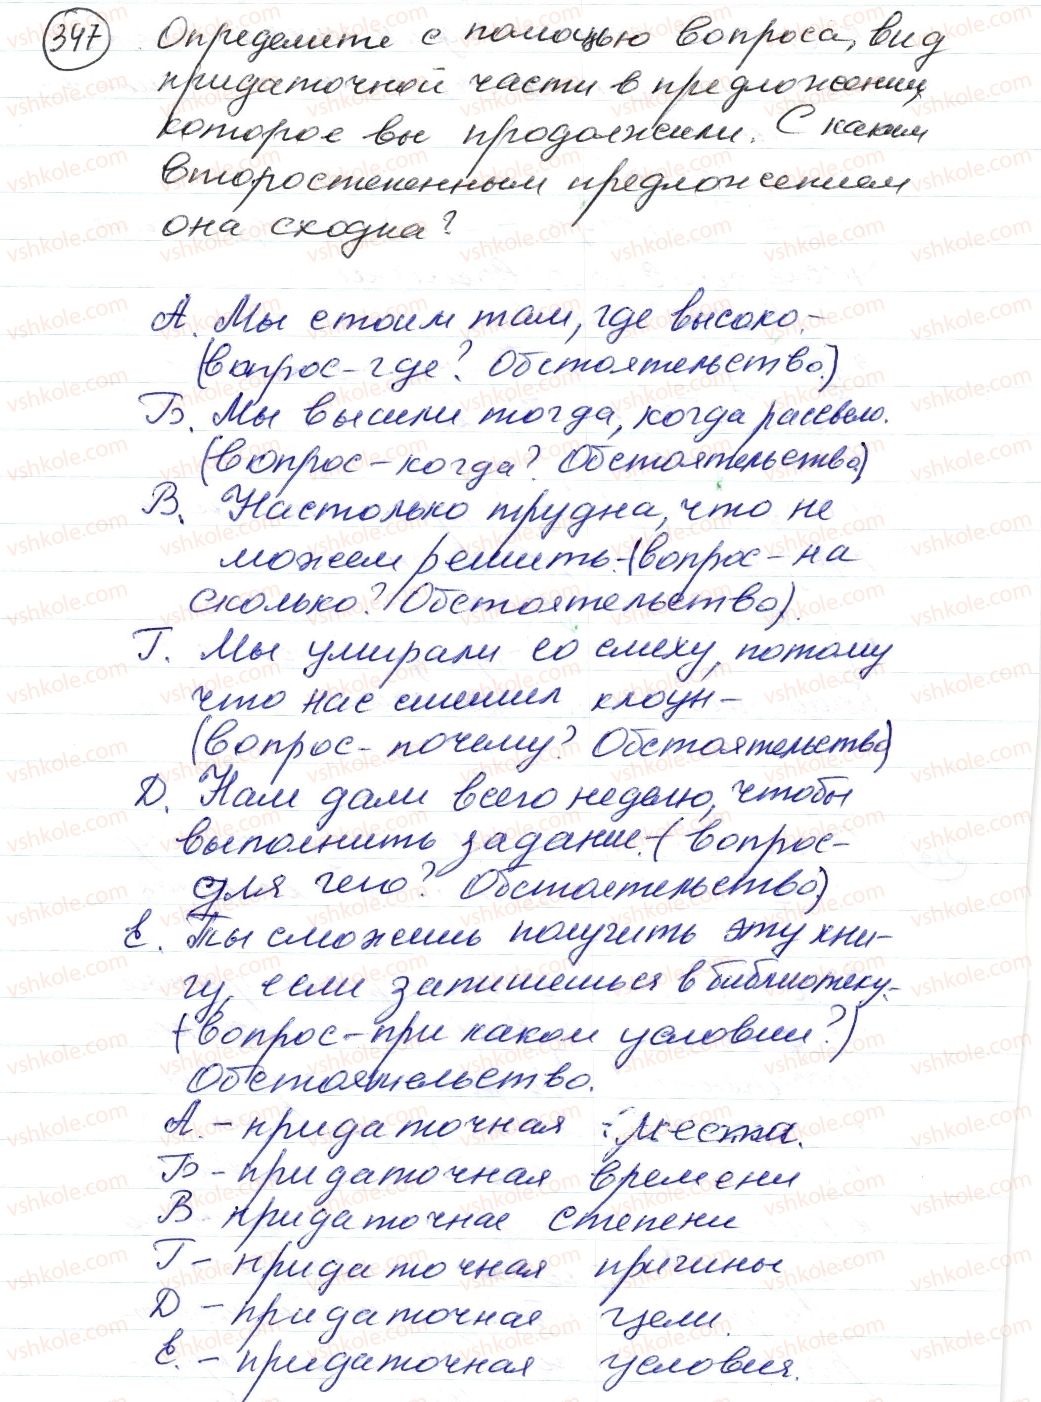 347 Определите с помощью вопроса, вид
придаточной части в предложении,
которое вы продолжили. С каким
второстепенным предложением
она сходна?
А. Мы стоим там, где высоко.-
(вопрос-где? Обстоятельство.)
Б. Мы вышли тогда, когда рассвело.
(вопрос-когда? Обстоятельство)
В. Настолько трудна, что не
можем решить.-(вопрос-на
сколько? Обстоятельство).
Г. Мы умирали со смеху, потому
что нас смешил клоун-
(вопрос-почему? Обстоятельство)
Д. Нам дали всего неделю, чтобы
выполнить задание.-(вопрос-
для чего? Обстоятельство)
Е. Ты сможешь получить эту кни-
гу, если запишешься в библиотеку.-
(вопрос-при каком условии?)
Обстоятельство.
А.-придаточная места.
Б-придаточная времени
В-придаточное степени
Г-придаточная причины
Д-придаточная цели.
Е.-придаточная условия.